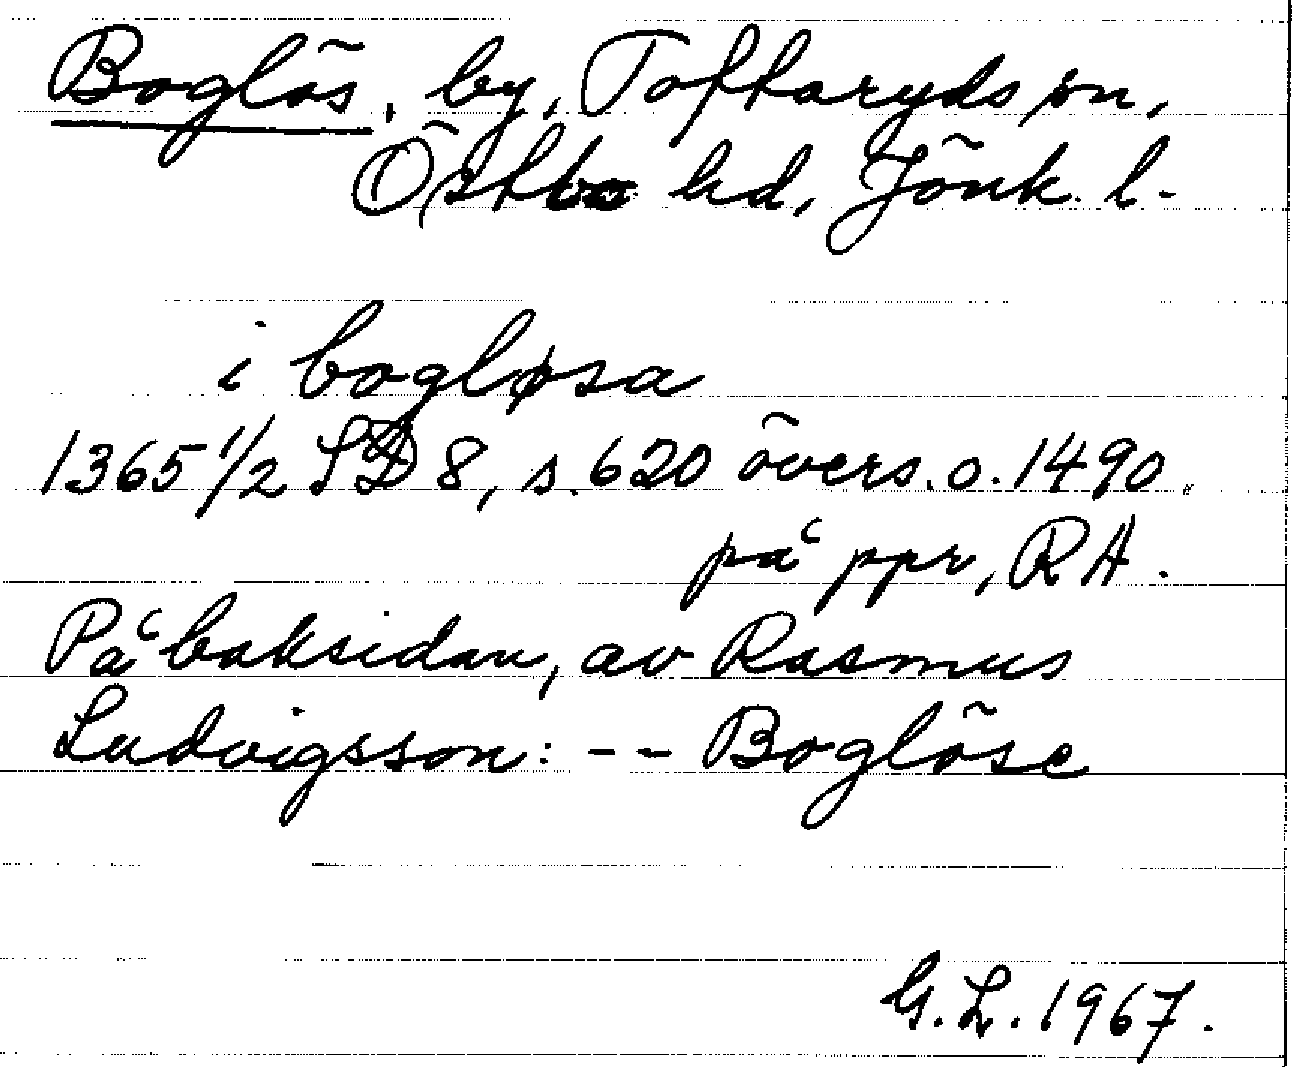 Boglös, by, Toftaryds sn,
Östbo hd, Jönk. l.
i bogløsa
1365 1/2 SD 8, s. 620 övers. o. 1490
på ppr, RA.
På baksidan, av Rasmus
Ludvigsson: -- Boglöse
G.L. 1967.